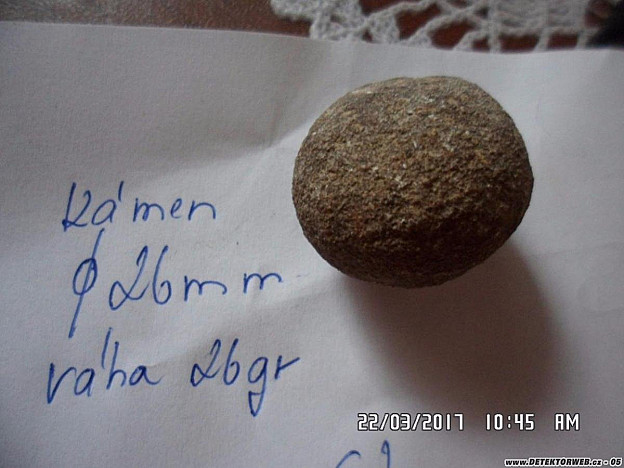 kámen
φ 26mm
váha 26gr
22/03/2017 10:45 AM
www.DETEKTORWEB.cz - 05